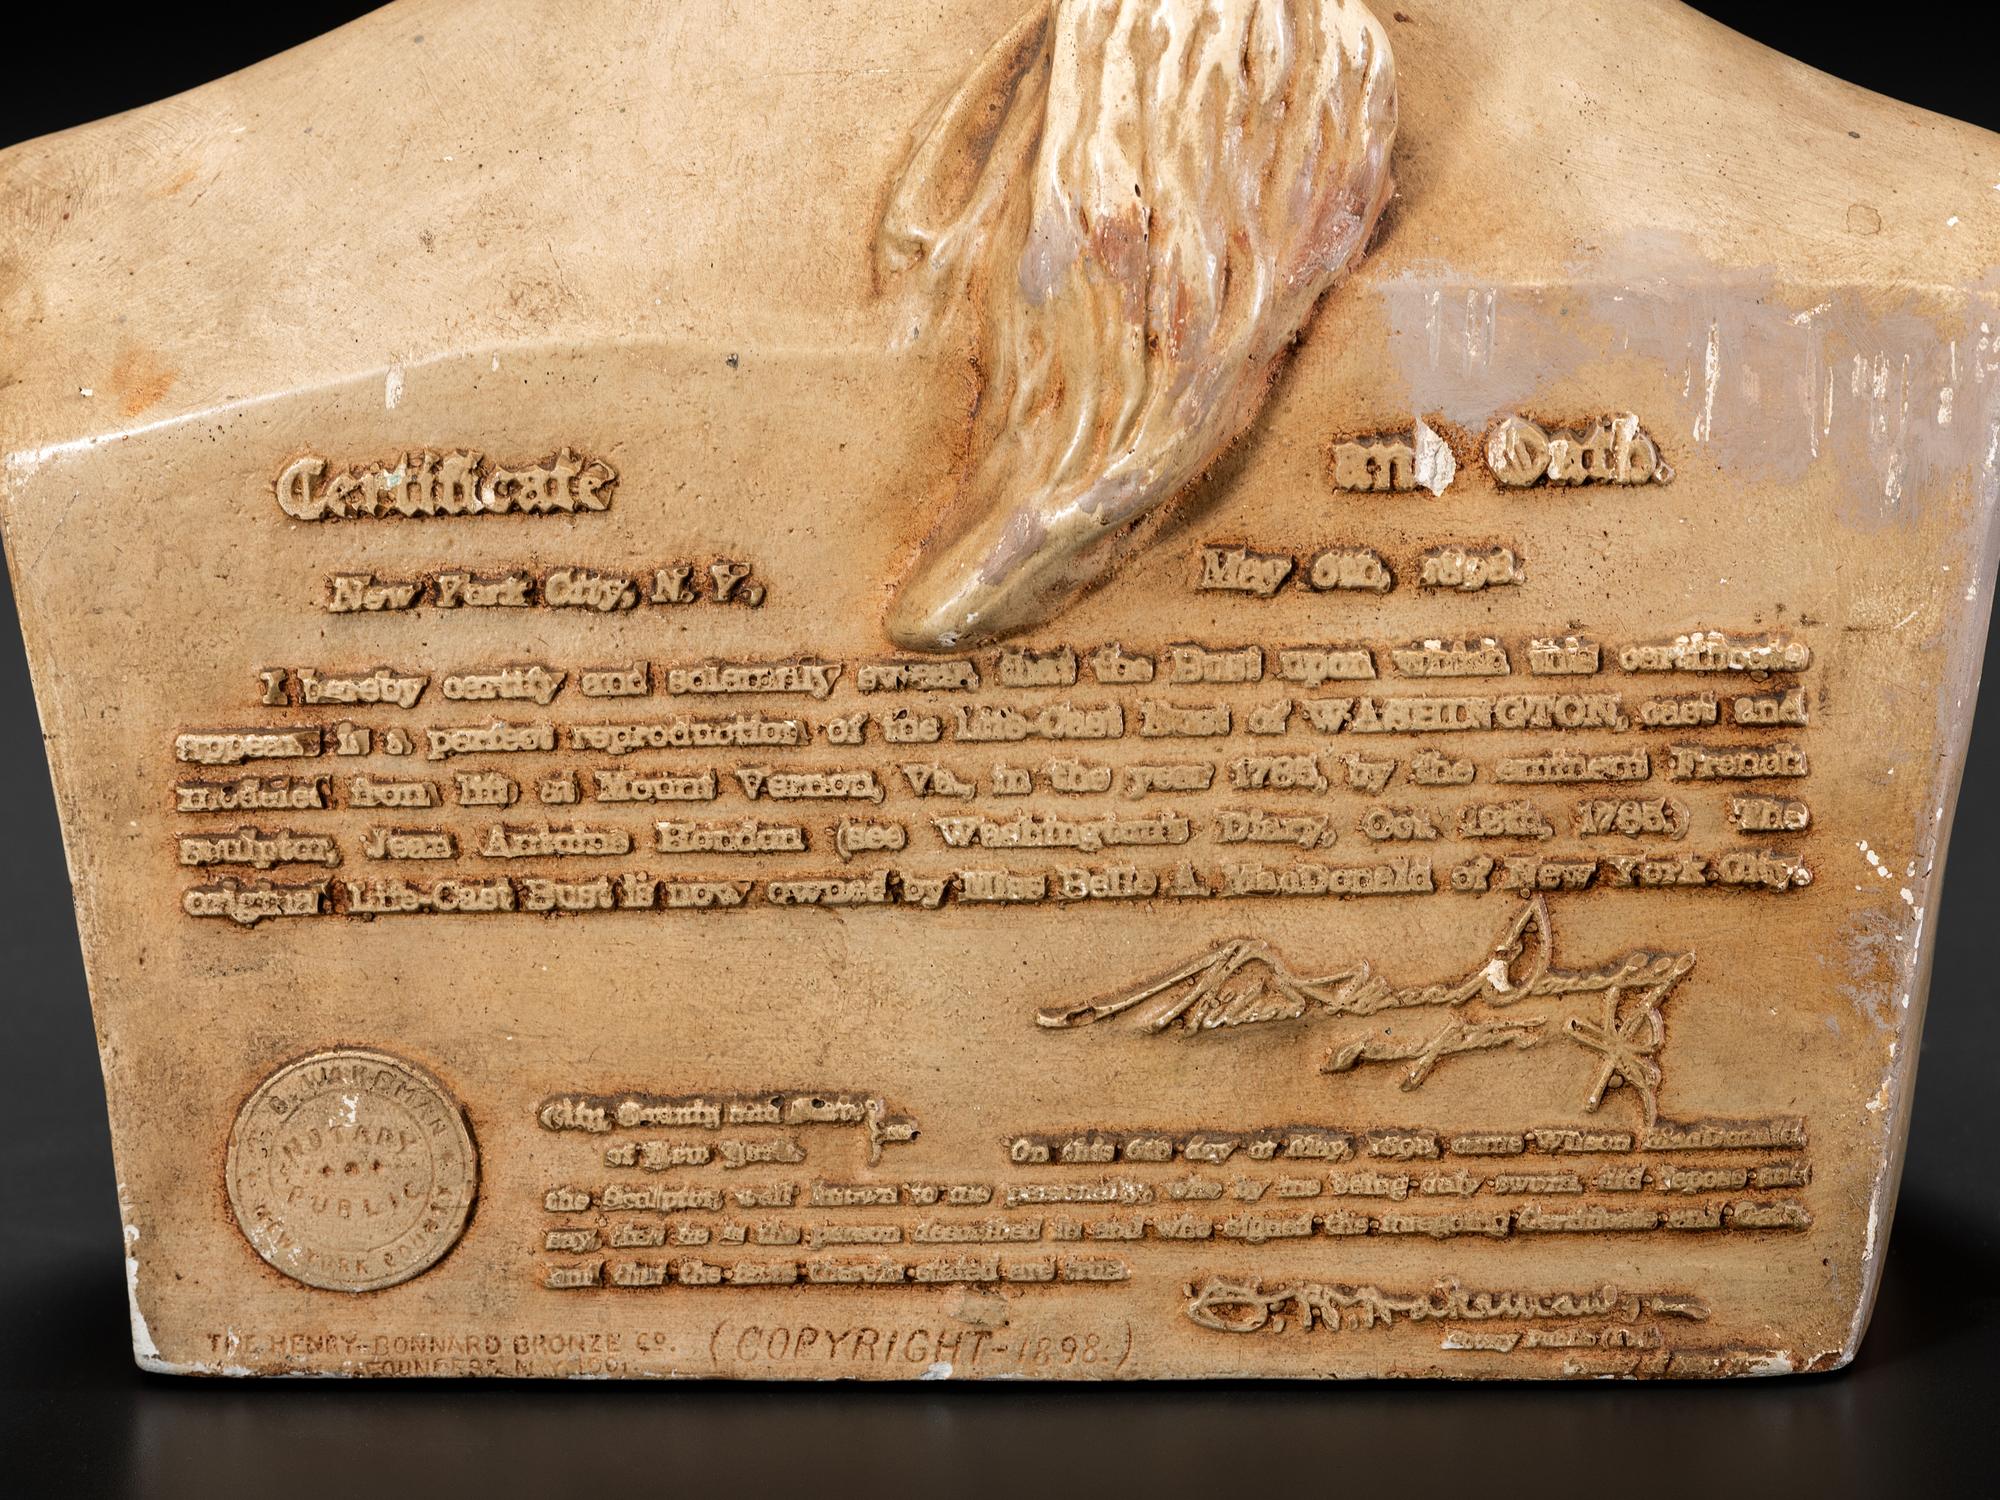 Certificate and Oath.
New York City, N. Y., May 6th, 1898.
I hereby certify and solemnly swear, that the Bust upon which this certificate
appears is a perfect reproduction of the Life-Cast Bust of WASHINGTON, cast and
modeled from life at Mount Vernon, Va., in the year 1785, by the eminent French
sculptor, Jean Antoine Houdon (see Washington's Diary, Oct. 1785.) The
original Life-Cast Bust is now owned by Miss Belle A. MacDonald of New York City.
Wilson MacDonald
Sculptor
City, County and State
of New York. ss
On this 6th day of May, 1898, came Wilson MacDonald
the Sculptor, well known to me personally, who by me being duly sworn did depose and
say, that he is the person described in and who signed the foregoing Certificate and Oath
and that the facts therein stated are true.
WAKEMAN
NOTARY
PUBLIC
NEW YORK COUNTY
Wakeman Jr
Notary Public
THE HENRY-BONNARD BRONZE Co.
FOUNDERS N.Y. 1901.
(COPYRIGHT-1898.)